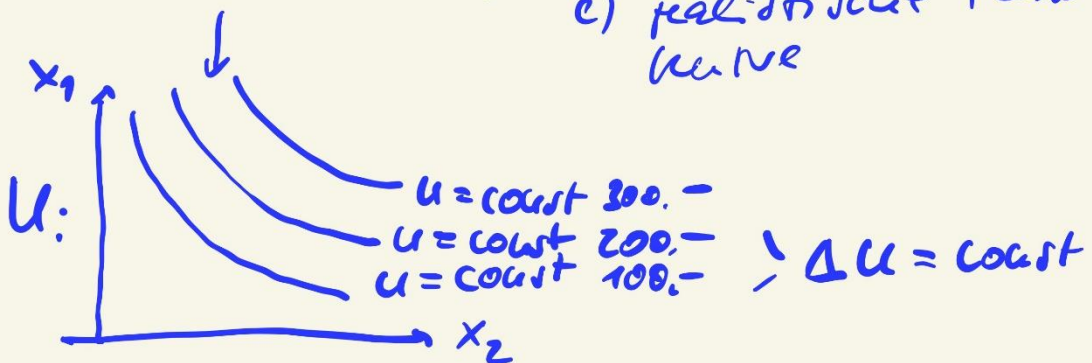 c)
kurve
x₁
U:
u = const 300.-
u = const 200.-
u = const 100.-
Δu = const
x₂